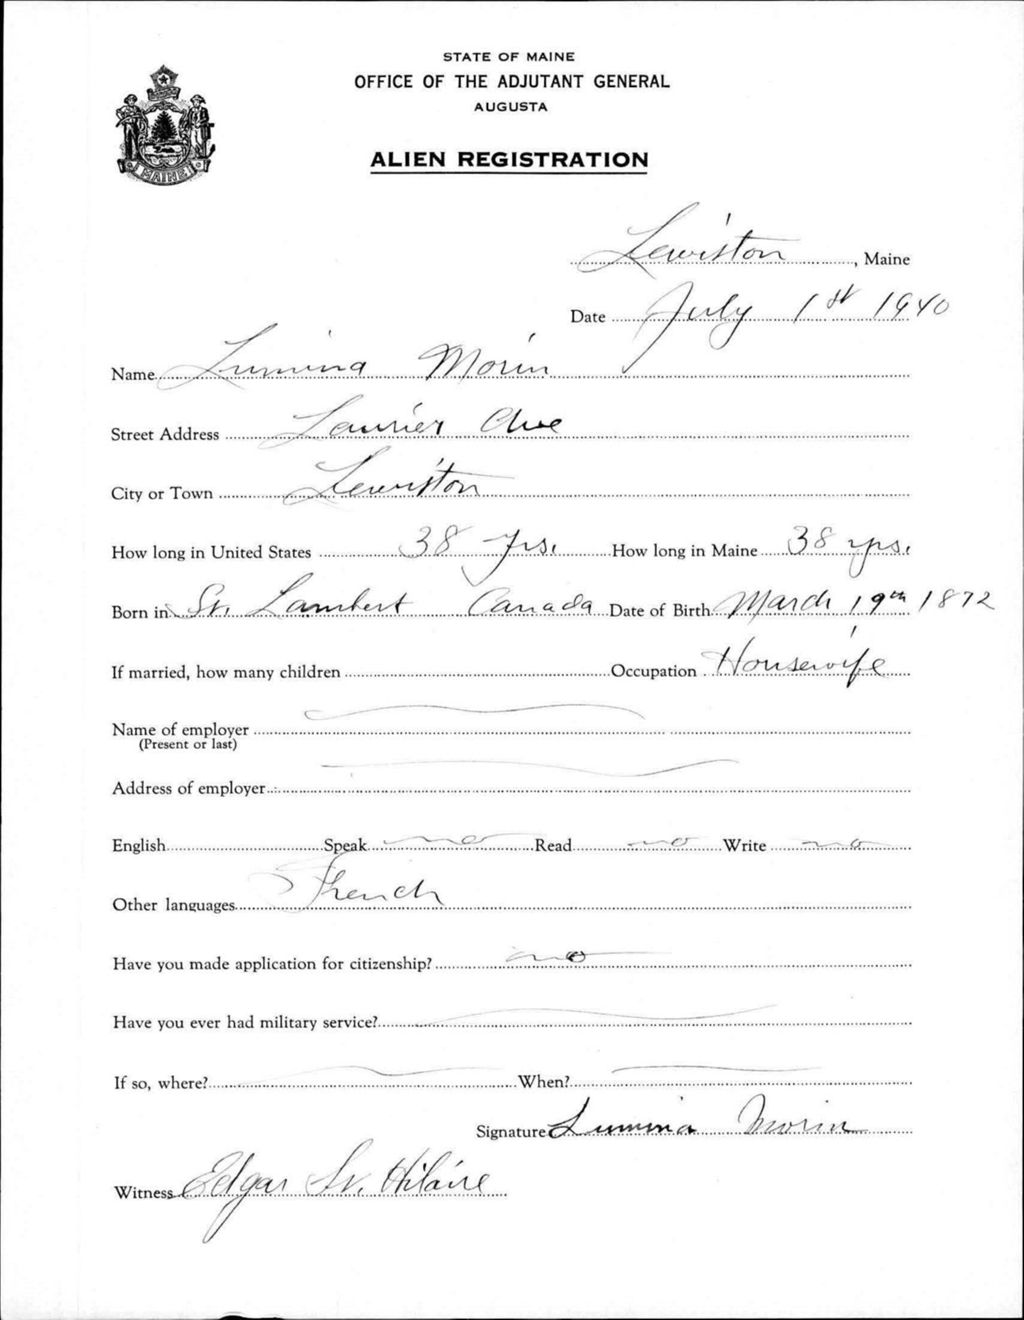 STATE OF MAINE
OFFICE OF THE ADJUTANT GENERAL
AUGUSTA
ALIEN REGISTRATION
MAINE
Lewiston, Maine
Date July 1st 1940
Name Lumina Morin
Street Address Laurier Ave
City or Town Lewiston
How long in United States 38 yrs. How long in Maine 38 yrs.
Born in St. Lambert Canada Date of Birth March 19th 1872
If married, how many children Occupation Housewife
Name of employer
(Present or last)
Address of employer
English Speak no Read no Write no
Other languages French
Have you made application for citizenship? no
Have you ever had military service?
If so, where? When?
Signature Lumina Morin
Witness Edgar St. Hilaire